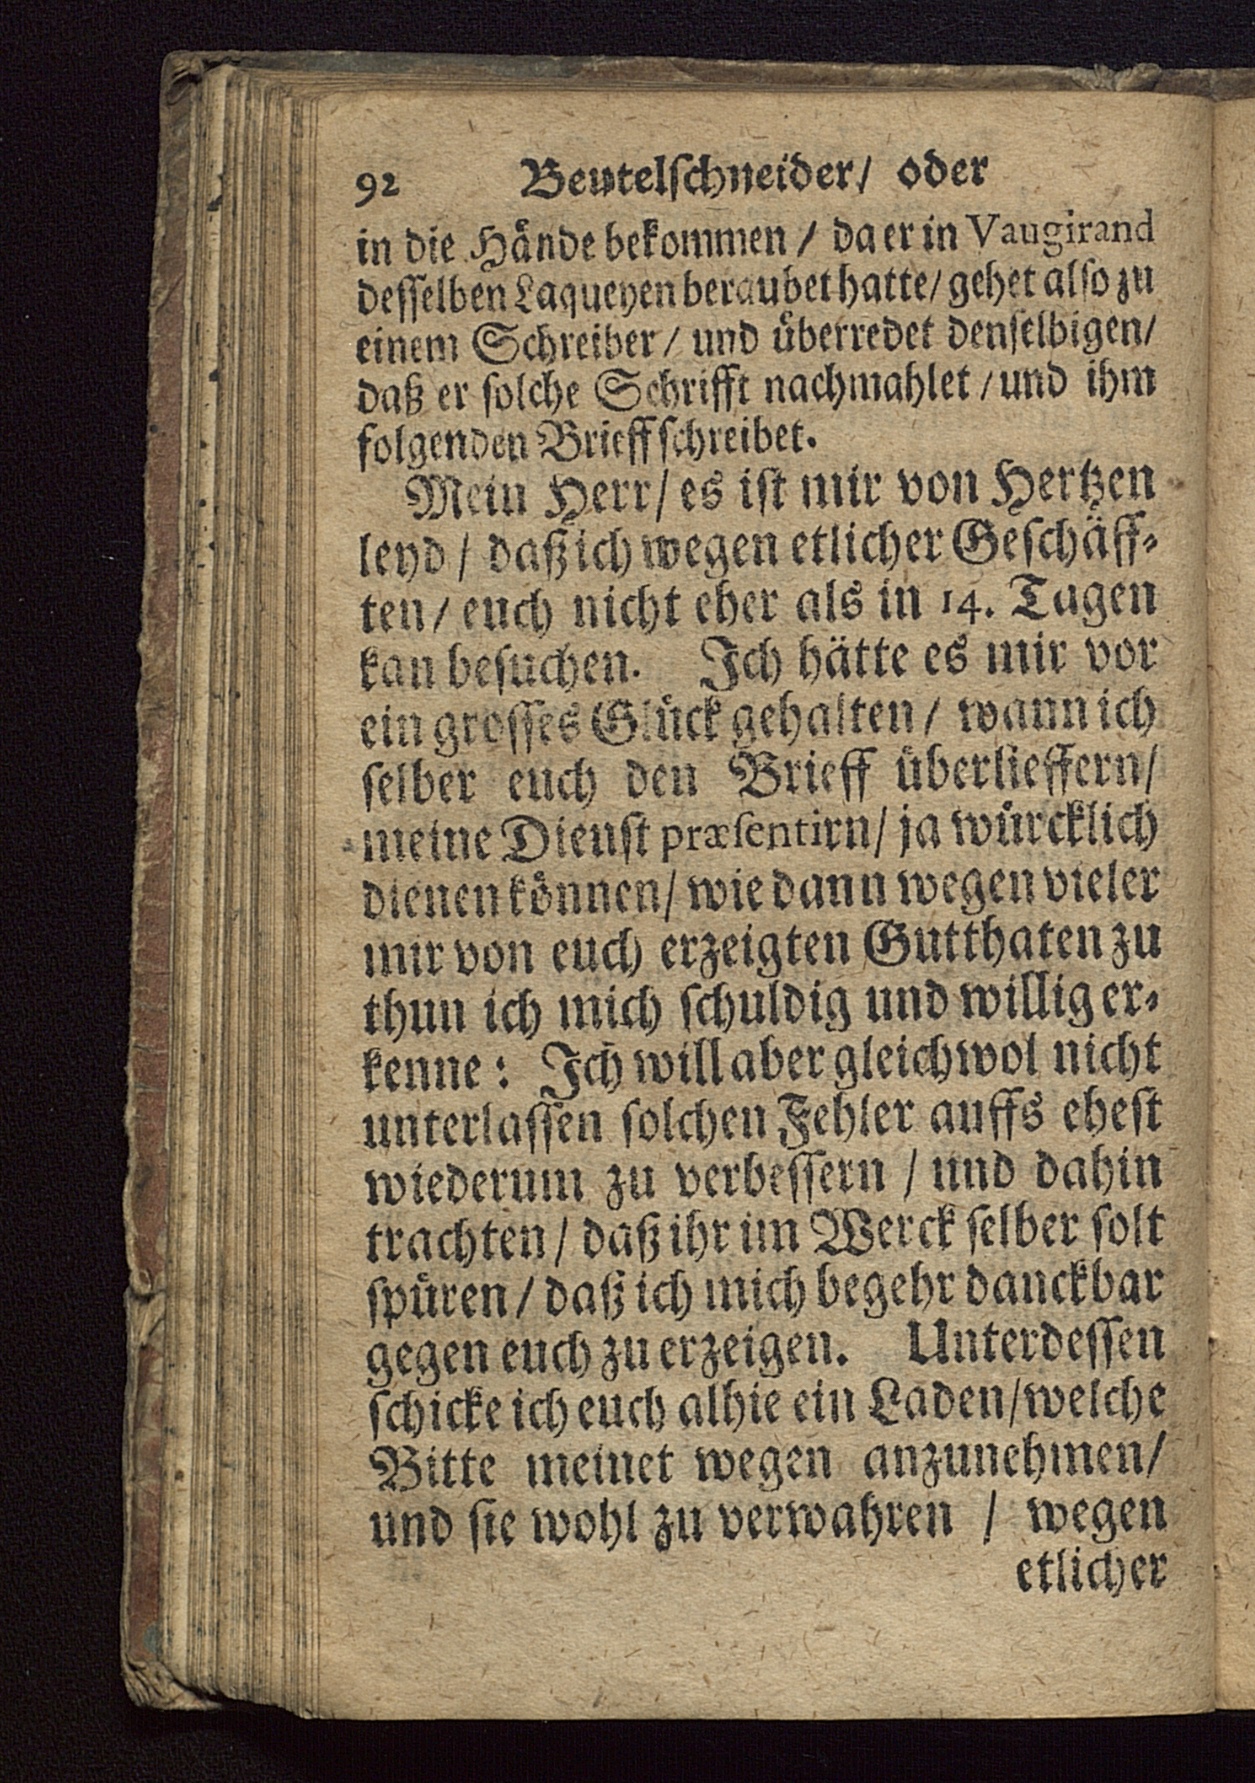 92 Beutelſchneider/ oder
in die Hände bekommen / da er in Vaugirand
deſſelben Laqueyen beraubet hatte/ gehet alſo zu
einem Schreiber/ und überredet denſelbigen/
daß er ſolche Schrifft nachmahlet / und ihm
folgenden Brieff ſchreibet.
Mein Herr/ es iſt mir von Hertzen
leyd / daß ich wegen etlicher Geſchäff⸗
ten/ euch nicht eher als in 14. Tagen
kan beſuchen. Ich hätte es mir vor
ein groſſes Glück gehalten/ wann ich
ſelber euch den Brieff überlieffern/
meine Dienſt præſentirn/ ja würcklich
dienen können/ wie dann wegen vieler
mir von euch erzeigten Gutthaten zu
thun ich mich ſchuldig und willig er⸗
kenne: Ich will aber gleichwol nicht
unterlaſſen ſolchen Fehler auffs eheſt
wiederum zu verbeſſern / und dahin
trachten/ daß ihr im Werck ſelber ſolt
ſpüren/ daß ich mich begehr danckbar
gegen euch zu erzeigen. Unterdeſſen
ſchicke ich euch alhie ein Laden/ welche
Bitte meinet wegen anzunehmen/
und ſie wohl zu verwahren / wegen
etlicher